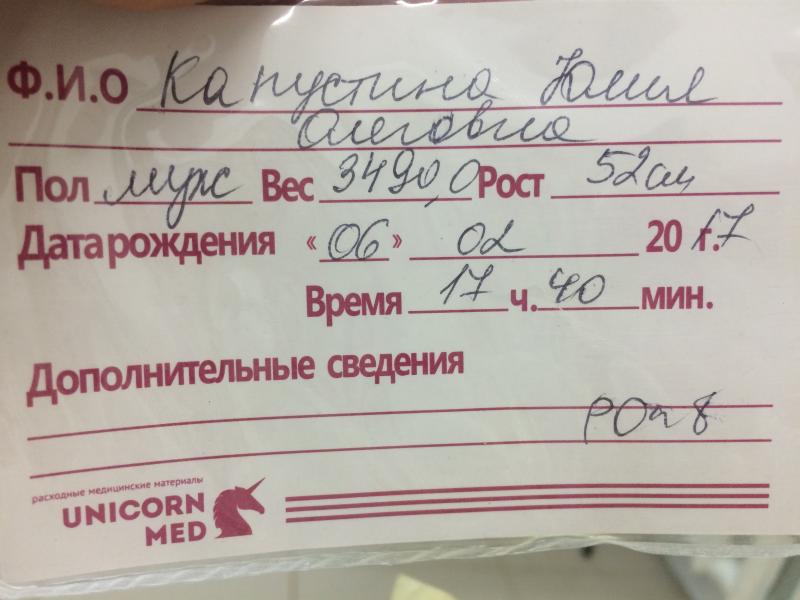 Ф.И.О Капустина Юлия
Олеговна
Пол муж Вес 3490,0 Рост 52см
Дата рождения «06» 02 2017 г.
Время 17 ч. 40 мин.
Дополнительные сведения
расходные медицинские материалы
UNICORN
MED